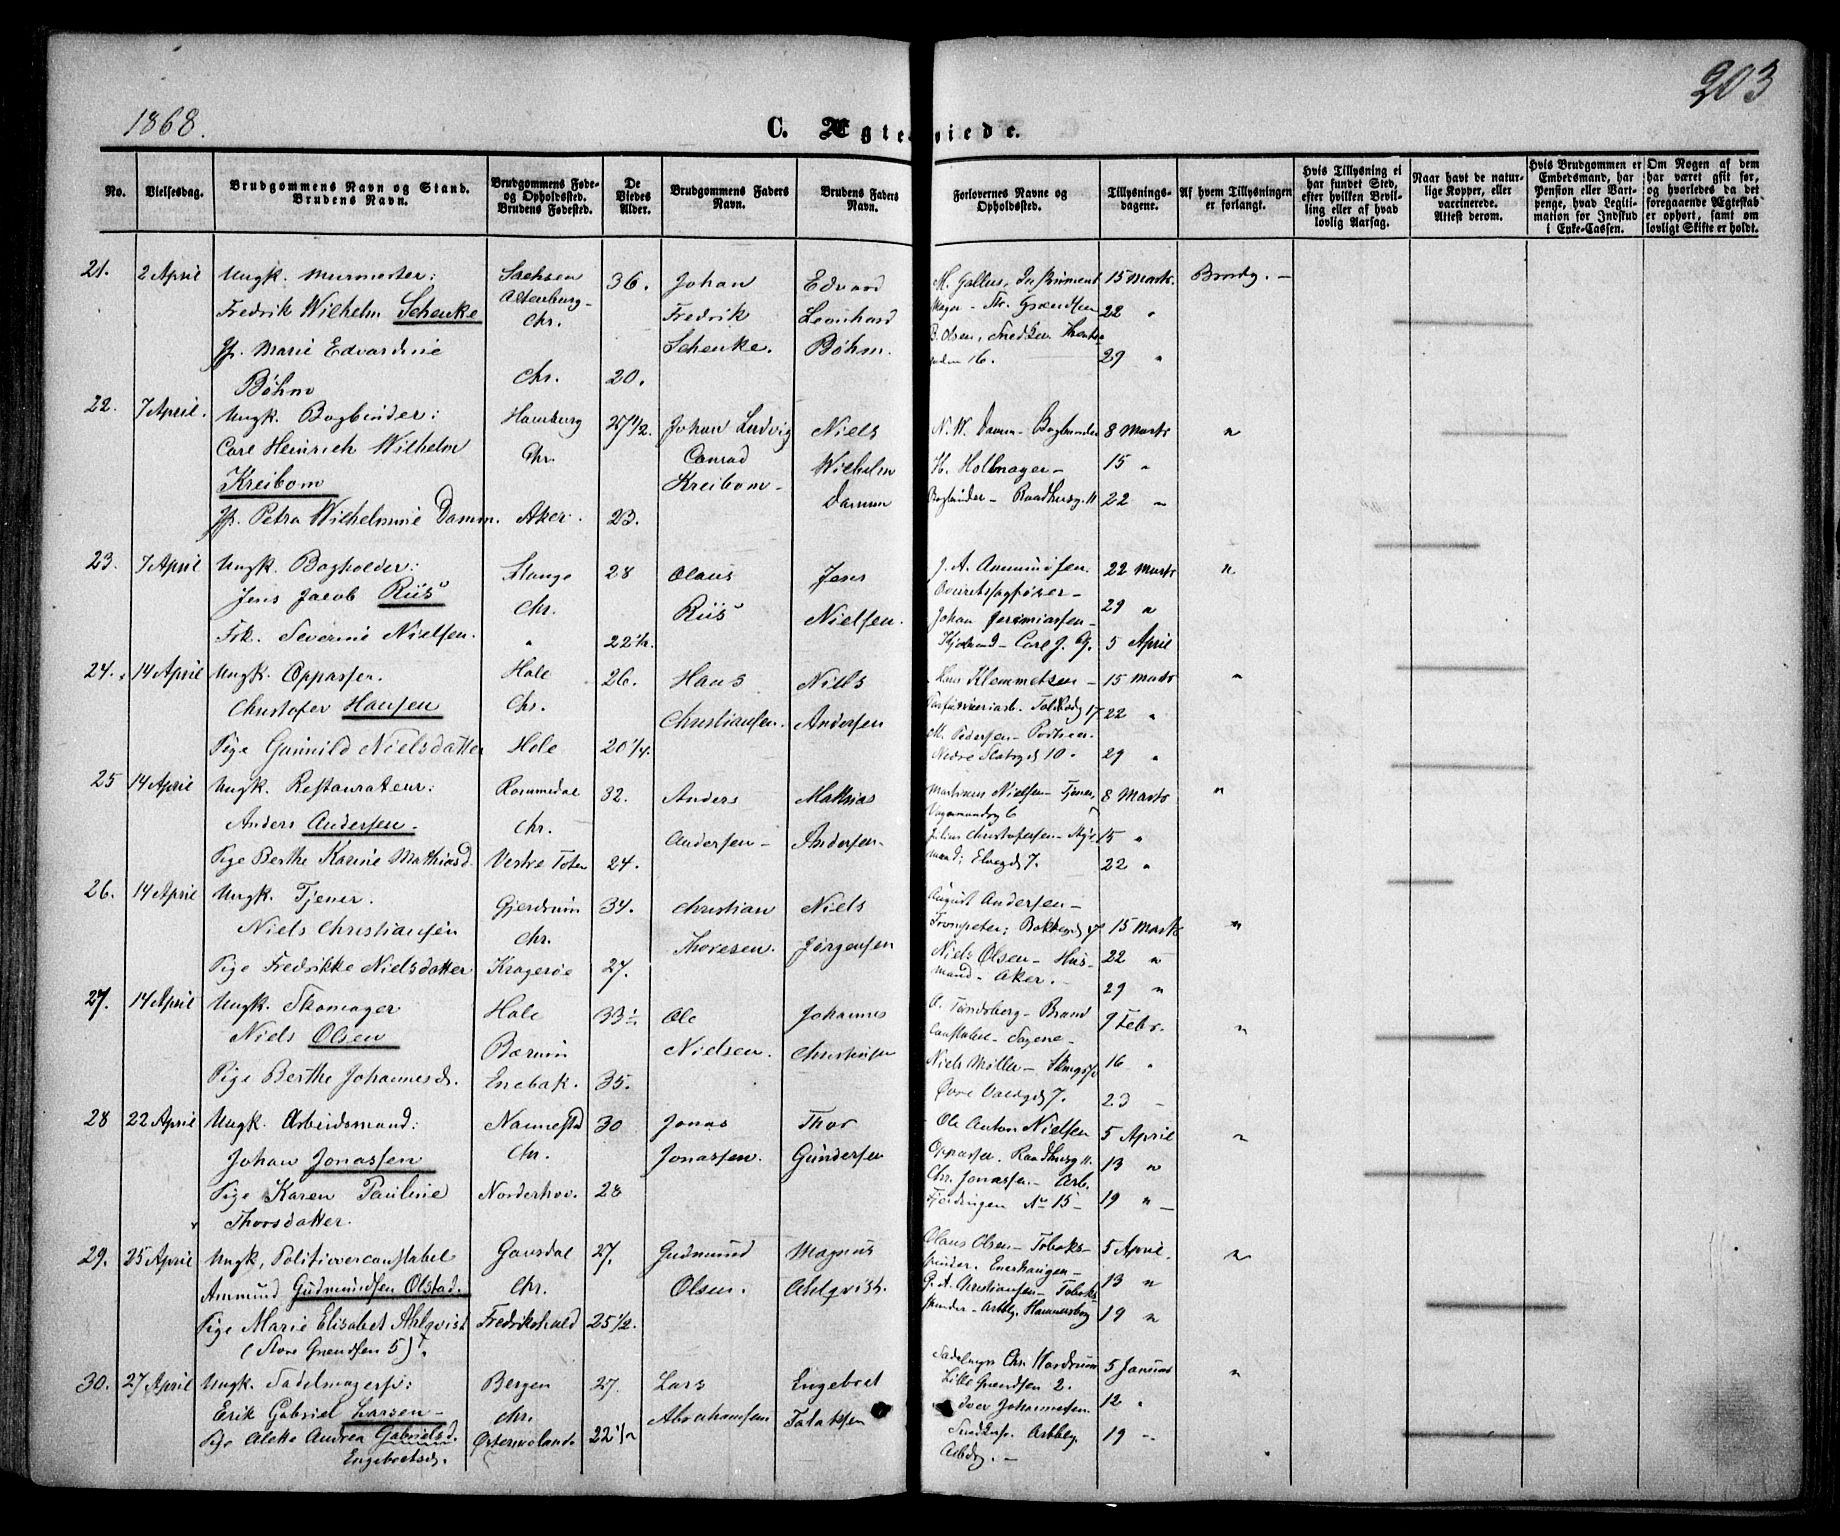 1868.
203
C. Ægteviede.
No.
Vielsesdag.
Brudgommens Navn og Stand.
Brudens Navn.
Brudgommens Føde- og Opholdssted.
Brudens Fødested.
De Viedes Alder.
Brudgommens Faders Navn.
Brudens Faders Navn.
Forlovernes Navne og Opholdssted.
Tillysnings-dagene.
Af hvem Tillysningen er forlangt.
Hvis Tillysning ei har fundet Sted, efter hvilken Bevilling eller af hvad lovlig Aarsag.
Naar havt de naturlige Kopper, eller vaccinerede. Attest derom.
Hvis Brudgommen er Embedsmand, har Pension eller Vartpenge, hvad Legitimation for Indskud i Enke-Cassen.
Om Nogen af dem har været gift før, og hvorledes da det foregaaende Ægteskab er ophørt, samt om lovligt Skifte er holdt.
21. 2 April Ungk. Murmester: Sachsen 36. Johan Edvard M. Galler, Instrument 15 Marts Brudg. —
Altenburg-
Fredrik Wilhelm Schenke Chr. Fredrik Leonhard mager - St. Grændsen 22 "
Jfr. Marie Edvardine Schenke. Böhm. B. Olsen, Snedker 29 "
Böhm Chr. 20. 16.
22. 7 April. Ungk. Bogbinder: Hamburg 27 1/2. Johan Ludvig Niels N. W. Damm - Bogbinder 8 Marts "
Carl Heinrich Wilhelm Chr. Conrad Wilhelm H. Hollnager - 15 "
Kreibom Kreibom - Damm Bogbinder - Raadhusg. 11 22 "
Jfr. Petra Wilhelmine Damm. Aker. 23.
23. 7 April Ungk. Bogholder: Stange 28 Olaus Jens J. A. 22 Marts "
Jens Jacob Riis Chr. Riis Nielsen. Overretssagfører - 29 "
Frk. Severine Nielsen. " 22 1/2. Johan Jeremiassen -
Carl J. G. 5 April
24. 14 April Ungk. Oppasser. Hole 26. Hans Niels Klemmetsen - 15 Marts "
Christofer Hansen Chr. Christiansen. Andersen 17 22 "
Pige Gunnild Nielsdatter Hole 20 1/4. M. Pedersen -
Nedre Slotsgd 10. 29 "
25 14 April Ungk. Restaurateur: Rommedal 32. Anders Mathias Martinus Nielsen - Tjener, 8 Marts "
Anders Andersen. Chr. Andersen - Andersen - 6
Julius Christofersen - 15 "
Pige Berthe Karine Mathiasd. Vestre Toten 24. mand; Elvegd 7. 22 "
26. 14 April Ungk. Tjener. Gjerdrum 34. Christian Niels August Andersen -
Niels Christiansen Chr. Thoresen. Jørgensen Trompeter; Bakkegd 7 15 Marts "
Pige Fredrikke Nielsdatter Kragerøe 27. Niels Olsen - Hus- 22 "
mand - Aker. - 29 "
27. 14 April Ungk. Skomager Hole 33 1/2 Ole Johannes O. Tønsberg - Brand 9 Febr. "
Niels Olsen Bærum Nielsen. Christiansen constabel - Sagene -
Niels Møller - 16 "
Pige Berthe Johannesd. Enebak. 35. Øvre Voldgd 7. 23 -
28 22 April Ungk. Arbeidsmand: Nannestad 30 Jonas Thor Ole Anton Nielsen 5 April "
Johan Jonassen Chr. Jonassen. Gundersen Oppasser. Raadhusg 11. 13 "
Pige Karen Pauline Norderhov. 28 Chr. Jonassen - Arb.
Thorsdatter. Fjerdingen No 15 - 19 " -
29. 25 April Ungk, Politioverconstabel Gausdal 27. Gudmund Magnus Olaus Olsen - Tobaks- 5 April. "
spinder. Enerhaugen -
Ammund Gudmundsen Olstad. Chr. Olsen. Ahlqvist. G. A. Christiansen - Tobaks 13 "
Pige Marie Elisabet Ahlqvist Fredrikshald 25 1/2. spinder - Arbbg. Hammersborg 19 "
(Store Grændsen 5).
30. 27 April Ungk. Sadelmagersv: Bergen 27. Lars Engebret Sadelmgr Chr. 5 Januar "
Lille Grændsen 2.
Erik Gabriel Larsen - Chr. Abrahamsen Falaksen Iver Johannesen 12 "
Pige Alette Andrea Gabrielsd. 22 1/2 Arbbg. 19 "
Engebretsd.